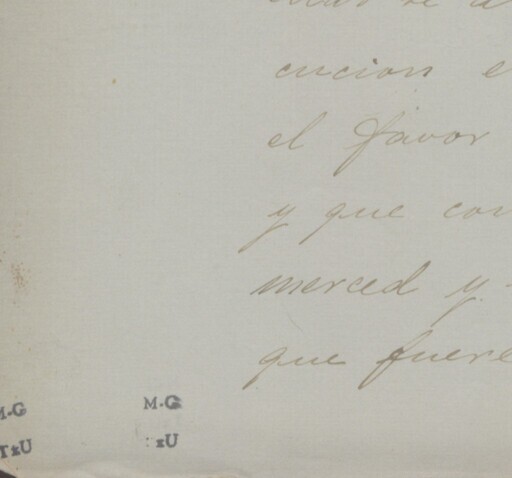 cucion e
el favor
y que con
merced y
que fuere
M-G M-G
TzU : zU